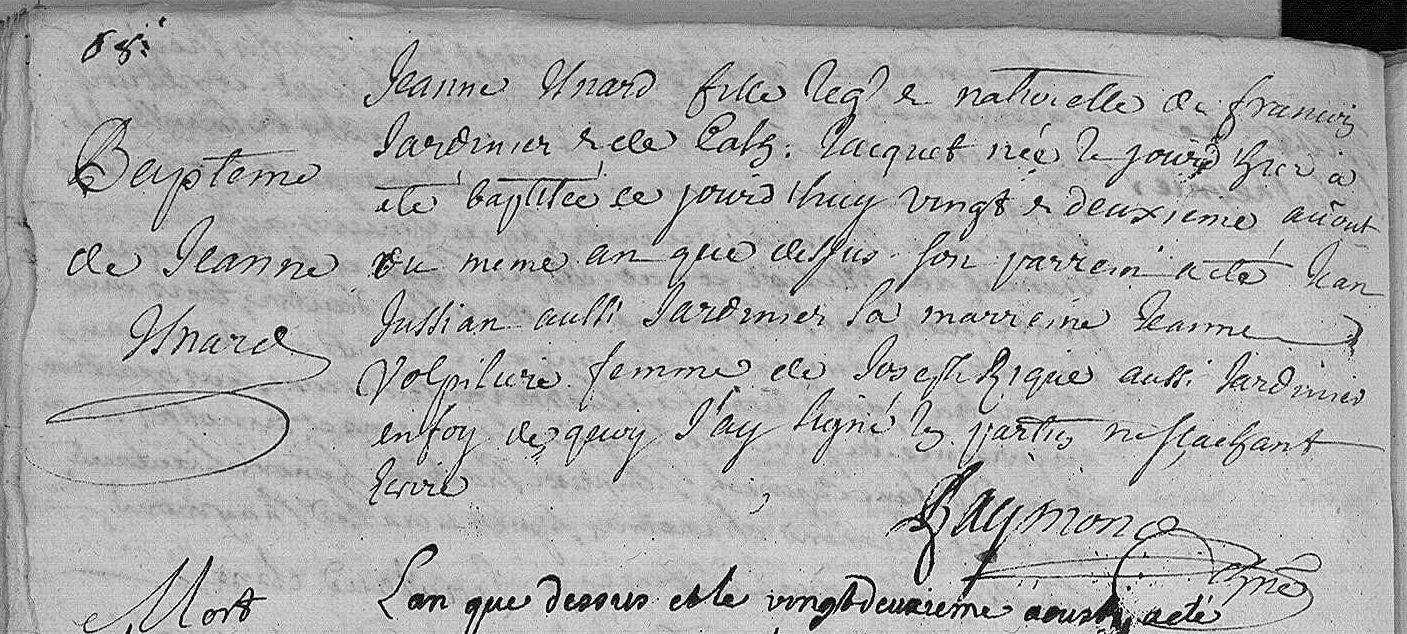 88.
Jeanne Ysnard fille leg.e & naturelle de francois
Jardinier & de Cath: Jacquet née le jourd'hier à
Bapteme
eté baptisée ce jourd'huy vingt & deuxieme auout
de Jeanne
du meme an que dessus. son parrein à eté Jean
Jussian aussi Jardinier sa marreine Jeanne
Ysnard
Volpiliere femme de Joseph Rique aussi Jardinier
en foy de quoy j'ay signé les parties ne sçachant
Ecrire
Raymond
Mort
Lan que dessus et le vingtdeuxieme aoust acté